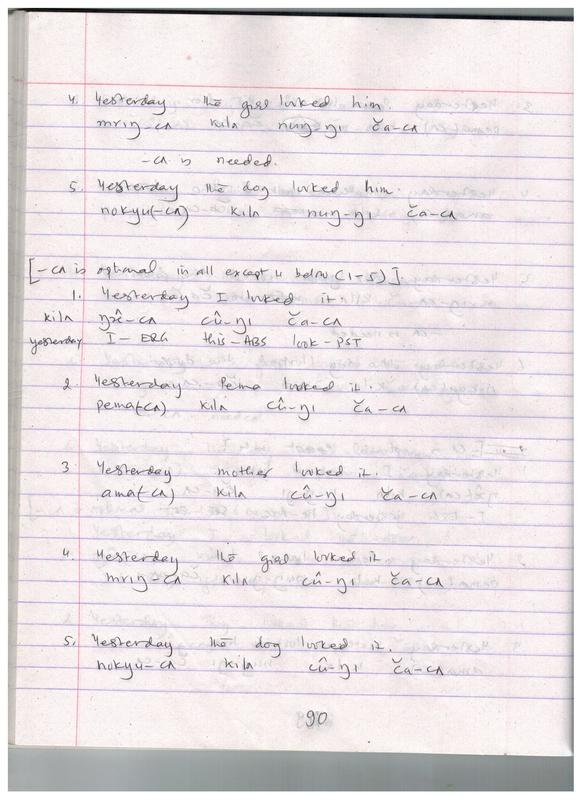 4. Yesterday the girl looked him.
mrıŋ-cʌ kilʌ nuŋ-ŋı ča-cʌ
-cʌ is needed.
5. Yesterday the dog looked him.
nokyu(-cʌ) kilʌ nuŋ-ŋı ča-cʌ
[-cʌ is optional in all except 4 below (1-5)]
1. Yesterday I looked it
kilʌ ŋʌ̂-cʌ cû-ŋı ča-cʌ
yesterday I-ERG this-ABS look-PST
2. Yesterday Pema looked it.
pema(-cʌ) kilʌ cû-ŋı ča-cʌ
3. Yesterday mother looked it.
ama(-cʌ) kilʌ cû-ŋı ča-cʌ
4. Yesterday the girl looked it
mrıŋ-cʌ kilʌ cû-ŋı ča-cʌ
5. Yesterday the dog looked it.
nokyu-cʌ kilʌ cû-ŋı ča-cʌ
90